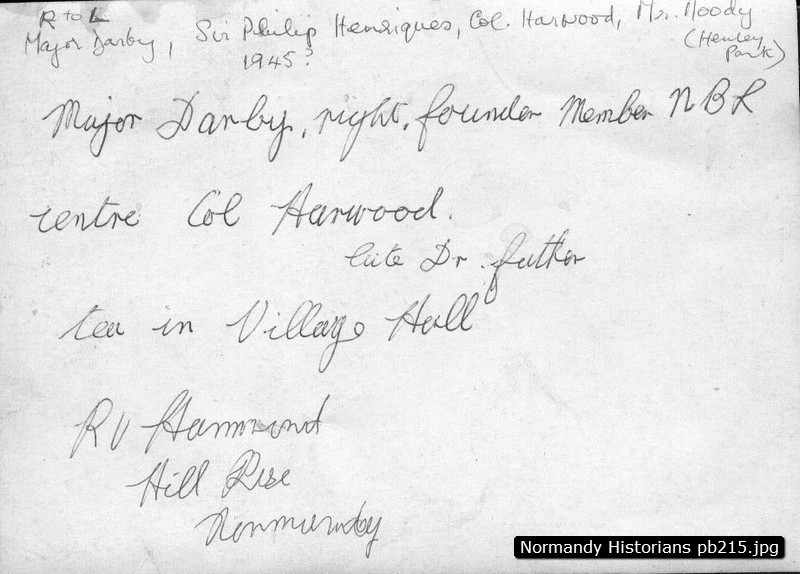 R to L
Major Darby, Sir Philip Henriques, Col. Harwood, Mr. Moody
1945?
(Henley Park)
Major Darby, right, founder Member NBL
centre Col Harwood.
late Dr. father
tea in Village Hall
RV Hammond
Hill Rise
Normandy
Normandy Historians pb215.jpg